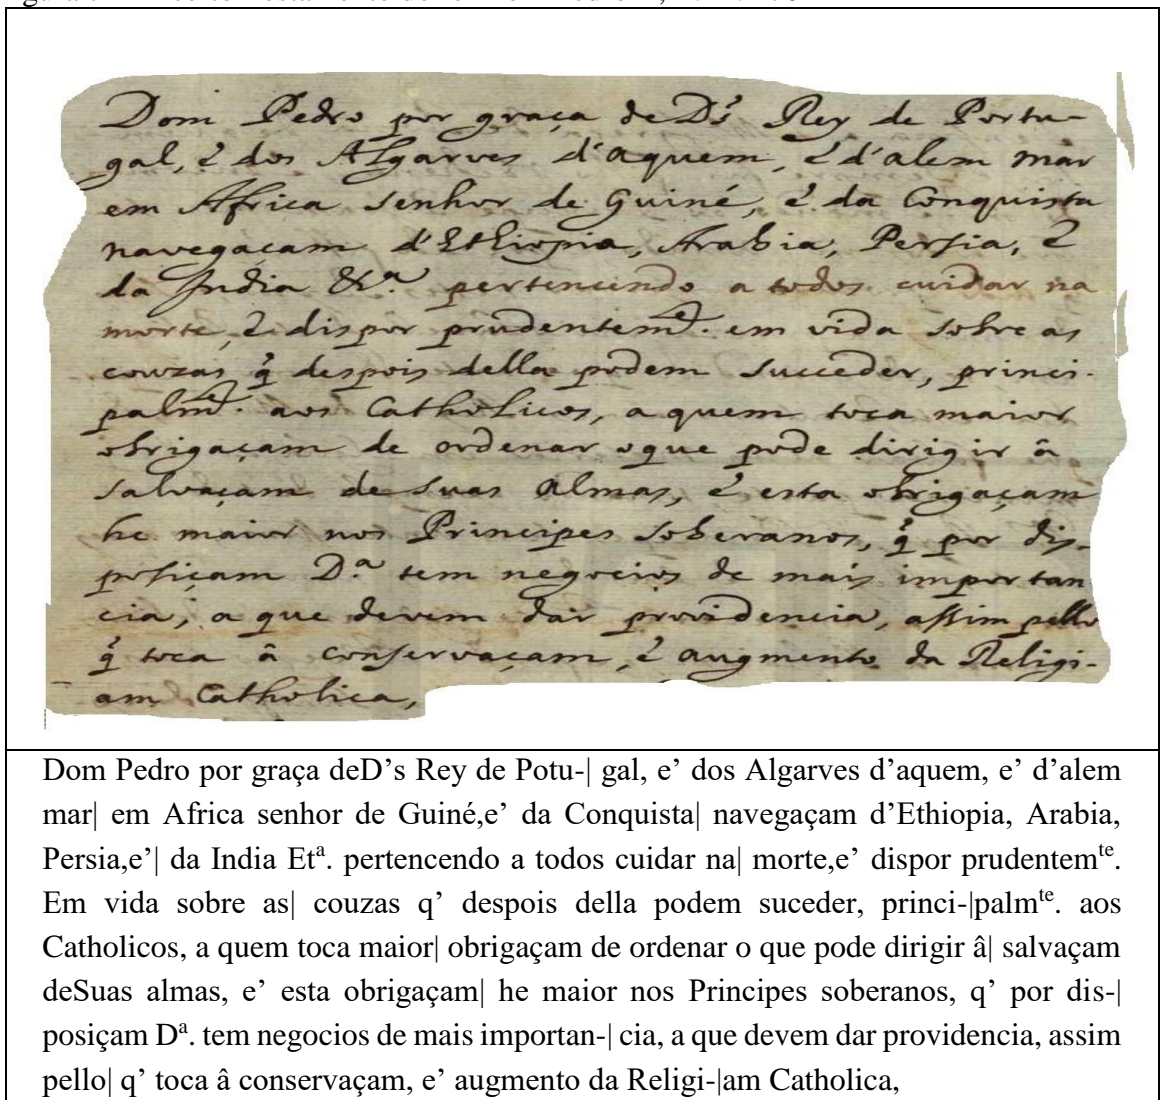 Dom Pedro por graça de D.s Rey de Portu-
gal, é dos Algarves d'aquem, é d'alem mar
em Africa senhor de Guiné, é da Conquista
navegaçam d'Ethiopia, Arabia, Persia, é
da India &c.ª pertencendo a todos cuidar na
morte, é dispor prudentem.te em vida sobre as
couzas q̃ despois della podem succeder, princi-
palm.te aos Catholicos, a quem toca maior
obrigaçam de ordenar oque pode dirigir â
salvaçam de suas almas, é esta obrigaçam
he maior nos Principes soberanos, q̃ por dis-
posiçam D.ª tem negocios de mais importan
cia, a que devem dar providencia, assim pello
q̃ toca â conservaçam, é augmento da Religi-
am Catholica,
Dom Pedro por graça deD’s Rey de Potu-| gal, e’ dos Algarves d’aquem, e’ d’alem
mar| em Africa senhor de Guiné,e’ da Conquista| navegaçam d’Ethiopia, Arabia,
Persia,e’| da India Etª. pertencendo a todos cuidar na| morte,e’ dispor prudentemᵗᵉ.
Em vida sobre as| couzas q’ despois della podem suceder, princi-|palmᵗᵉ. aos
Catholicos, a quem toca maior| obrigaçam de ordenar o que pode dirigir â| salvaçam
deSuas almas, e’ esta obrigaçam| he maior nos Principes soberanos, q’ por dis-|
posiçam Dª. tem negocios de mais importan-| cia, a que devem dar providencia, assim
pello| q’ toca â conservaçam, e’ augmento da Religi-|am Catholica,